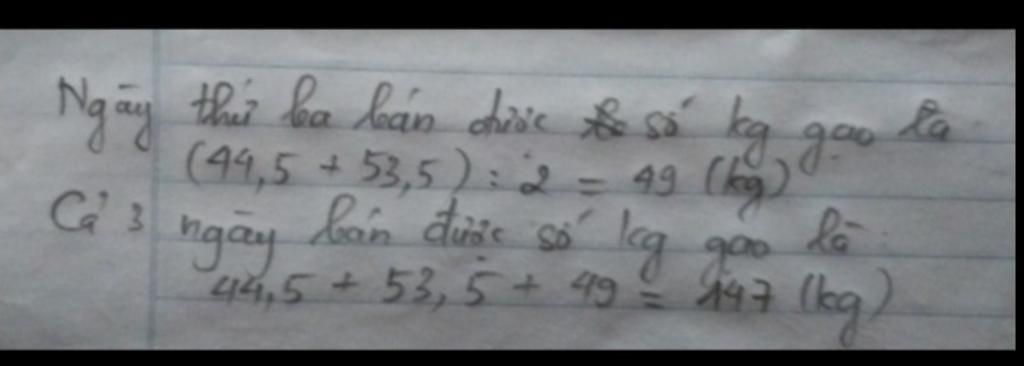 Ngày thứ ba bán được số kg gạo là
(44,5 + 53,5) : 2 = 49 (kg)
Cả 3 ngày bán được số kg gạo là :
44,5 + 53,5 + 49 = 147 (kg)